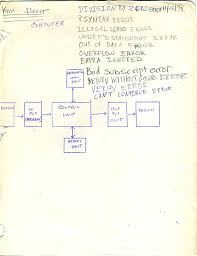 COMPUTER
DIVISION BY ZERO
?SYNTAX ERROR
ILLEGAL ERROR
UNDEF'D STATEMENT ERROR
OUT OF DATA ERROR
OVERFLOW ERROR
EXTRA IGNORED
Bad Subscript error
RETURN WITHOUT GOSUB ERROR
REDIM ERROR
CAN'T CONTINUE ERROR
UNIT
PERSON
IN PUT
CONTROL
UNIT
OUT
PUT
UNIT
PERSON
UNIT